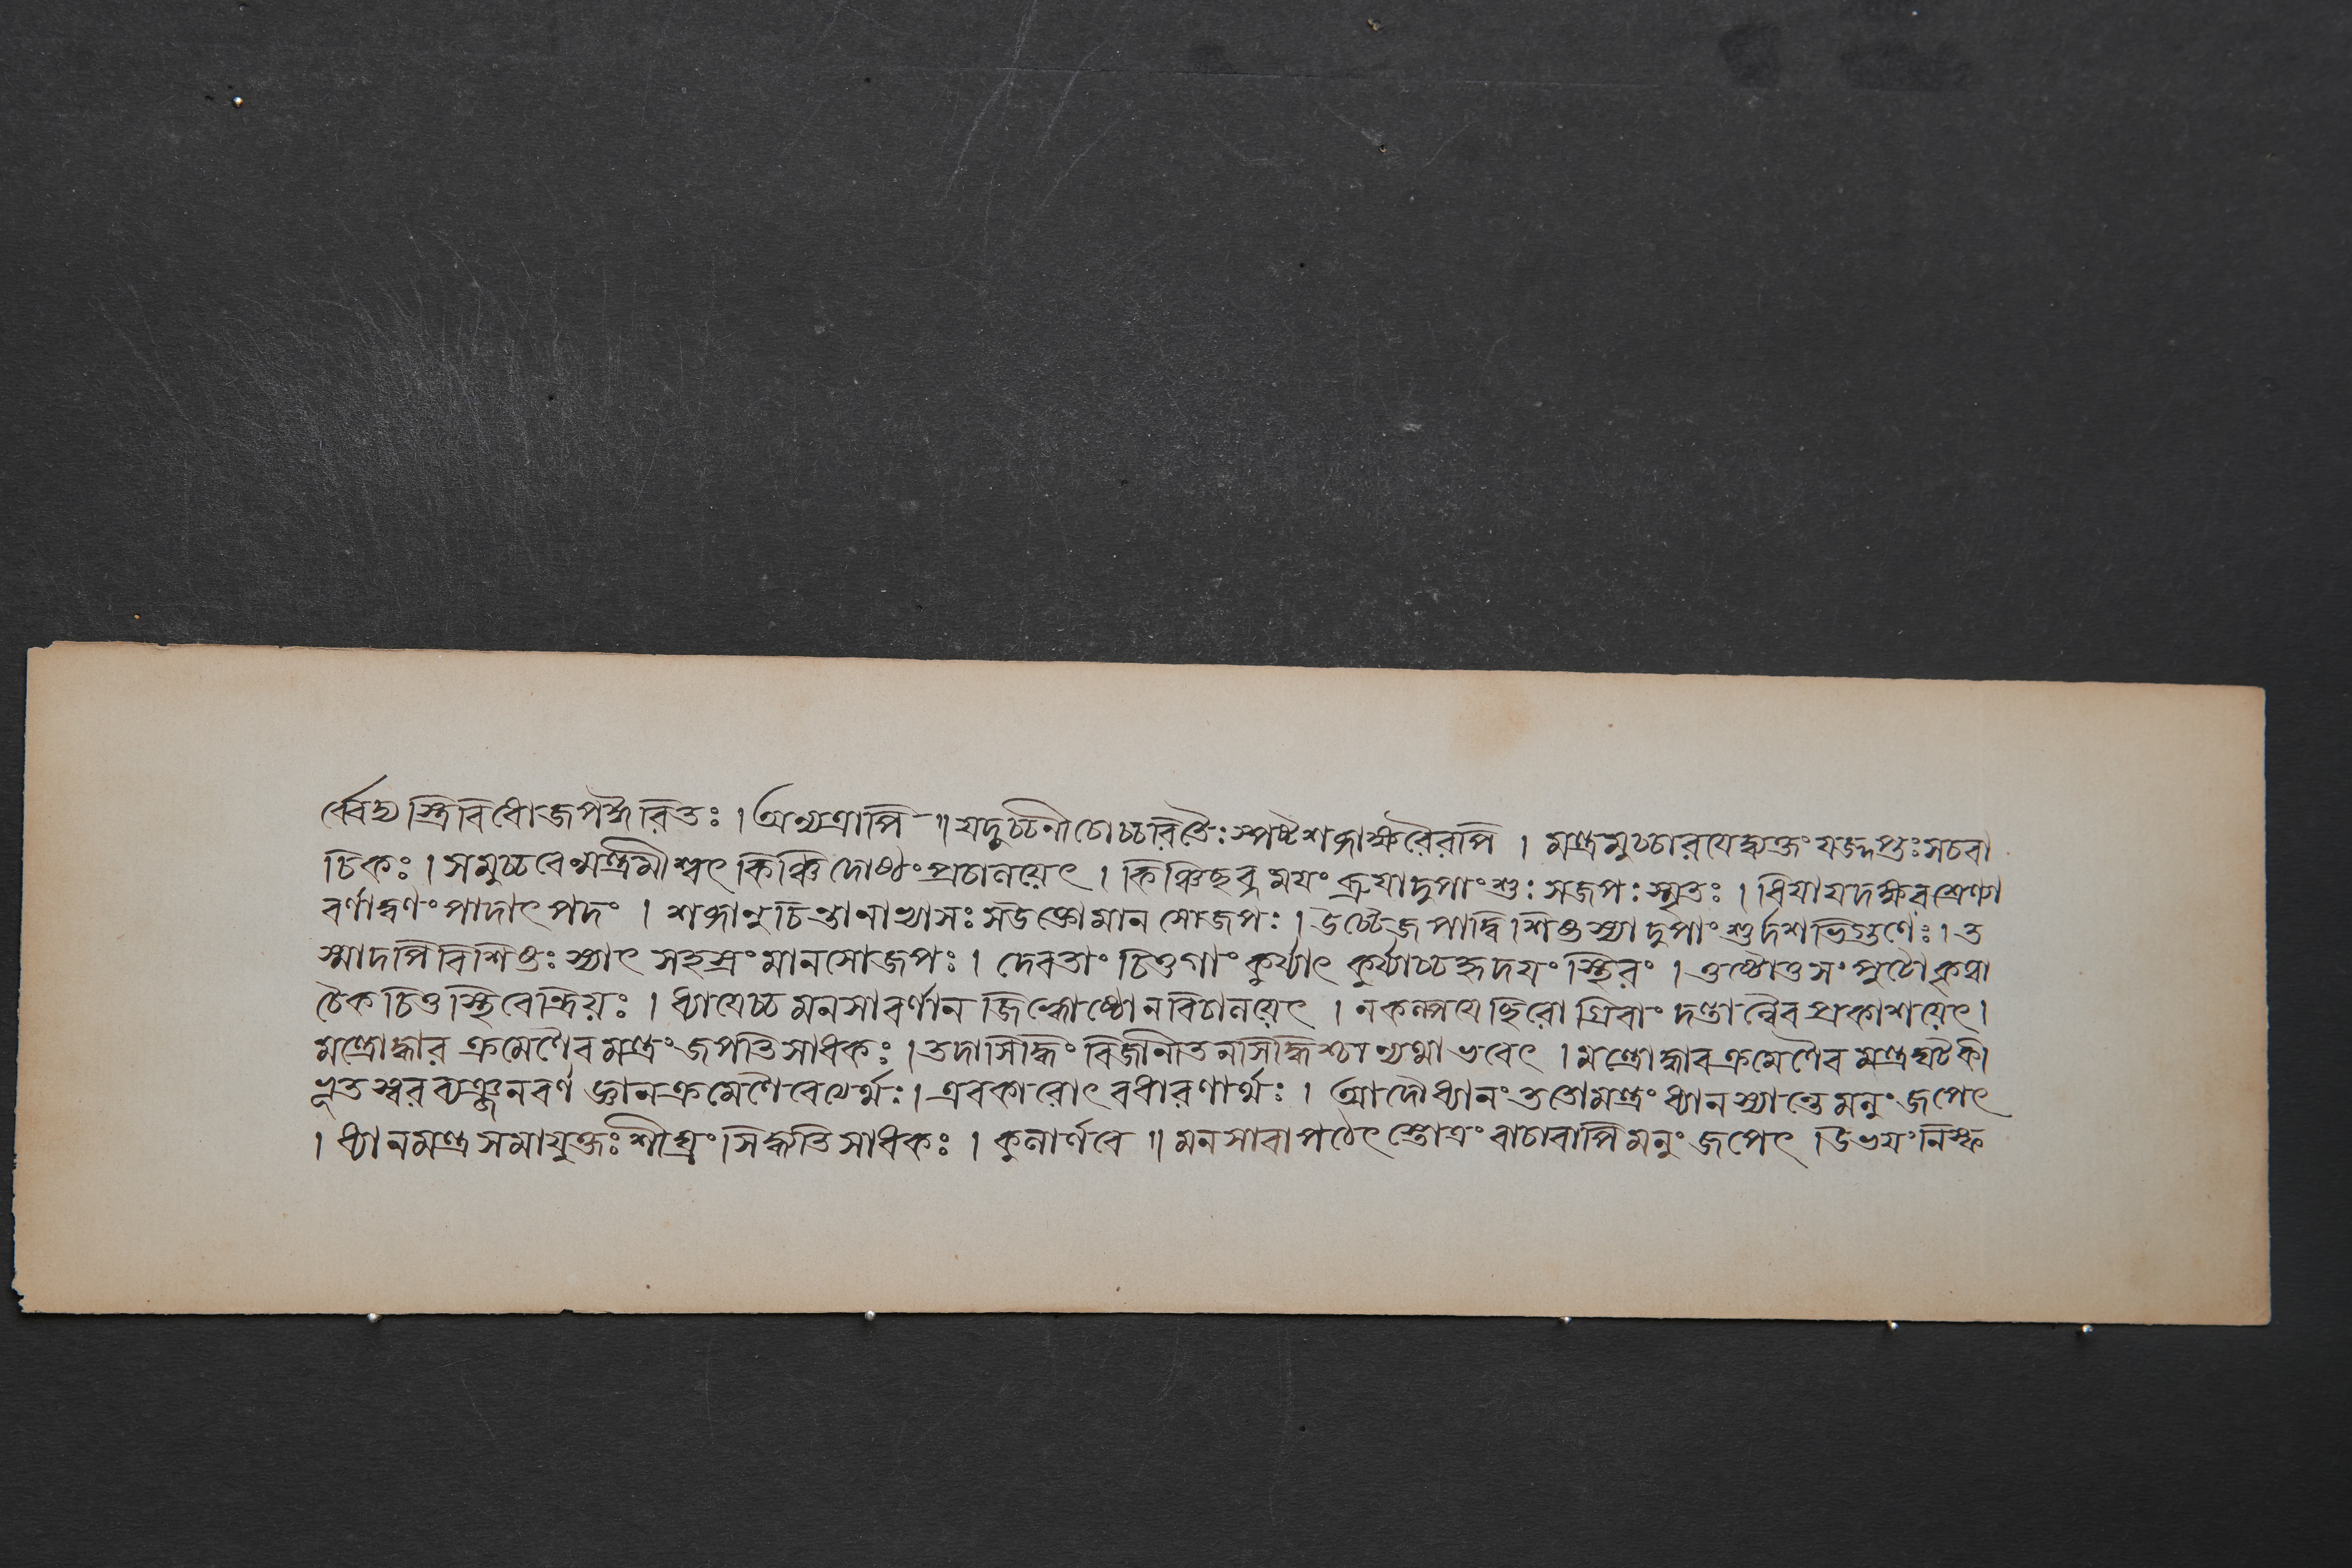 র্ব্বেদ্য স্ত্রিবিধোজপঈরিতঃ । অন্যত্রাপি ॥ যদুচ্চনীচোচ্চরিতৈঃ স্পষ্টশব্দাক্ষরৈরপি । মন্ত্রমুচ্চারযেদ্ব্যক্তং যজ্ঞপ্তঃ সচবা
চিকঃ । সমুচ্চরেন্মন্ত্রমীশ্বৎ কিঞ্চিদোষ্ঠং প্রচালয়েৎ । কিঞ্চিছব্দময়ং ব্রুযাদুপাংশুঃ সজপঃ স্মৃতঃ । ধিযাযদক্ষরশ্রেণ্যা
বর্ণাদ্বর্ণং পাদাৎ পদং । শব্দানুচিন্তানাভ্যাসঃ সউক্তোমানসোজপঃ । উচ্চৈর্জপাদ্বিশিষ্ট স্যাদুপাংশুর্দশভির্গুণৈঃ । ত
স্মাদপিবিশিষ্টঃ স্যাৎ সহস্রং মানসোজপঃ । দেবতাং চিত্তগাং কুর্য্যাৎ কুর্য্যাচ্চহৃদযং স্থিরং । ওষ্ঠৌতুসংপুটৌকৃত্বা
চৈকচিত্তস্থিরেন্দ্রিয়ঃ । ধ্যাযেচ্চ মনসাবর্ণান জিহ্বোষ্ঠোনবিচালয়েৎ । নকল্পযেছিরোগ্রিবাং দন্তান্নৈব প্রকাশয়েৎ ।
মন্ত্রোদ্ধার ক্রমেণৈব মন্ত্রং জপতিসাধকঃ । তদাসিদ্ধিং বিজানীতনসিদ্ধিশ্চান্যথাভবেৎ । মন্ত্রোদ্ধারক্রমেণৈব মন্ত্রঘটকী
ভূতস্বরব্যঞ্জনবর্ণ জ্ঞানক্রমেণৈবেত্যর্থঃ । এবকারোৎবধারণার্থঃ । আদৌধ্যানং ততোমন্ত্রং ধ্যানস্যান্তেমনুংজপেৎ
। ধ্যানমন্ত্রসমাযুক্তঃশীঘ্রং সিদ্ধতিসাধকঃ । কুলার্ণবে ॥ মনসাবাপঠেৎস্তোত্রং বাচাবাপিমনুংজপেৎ । উভযংনিস্ফ